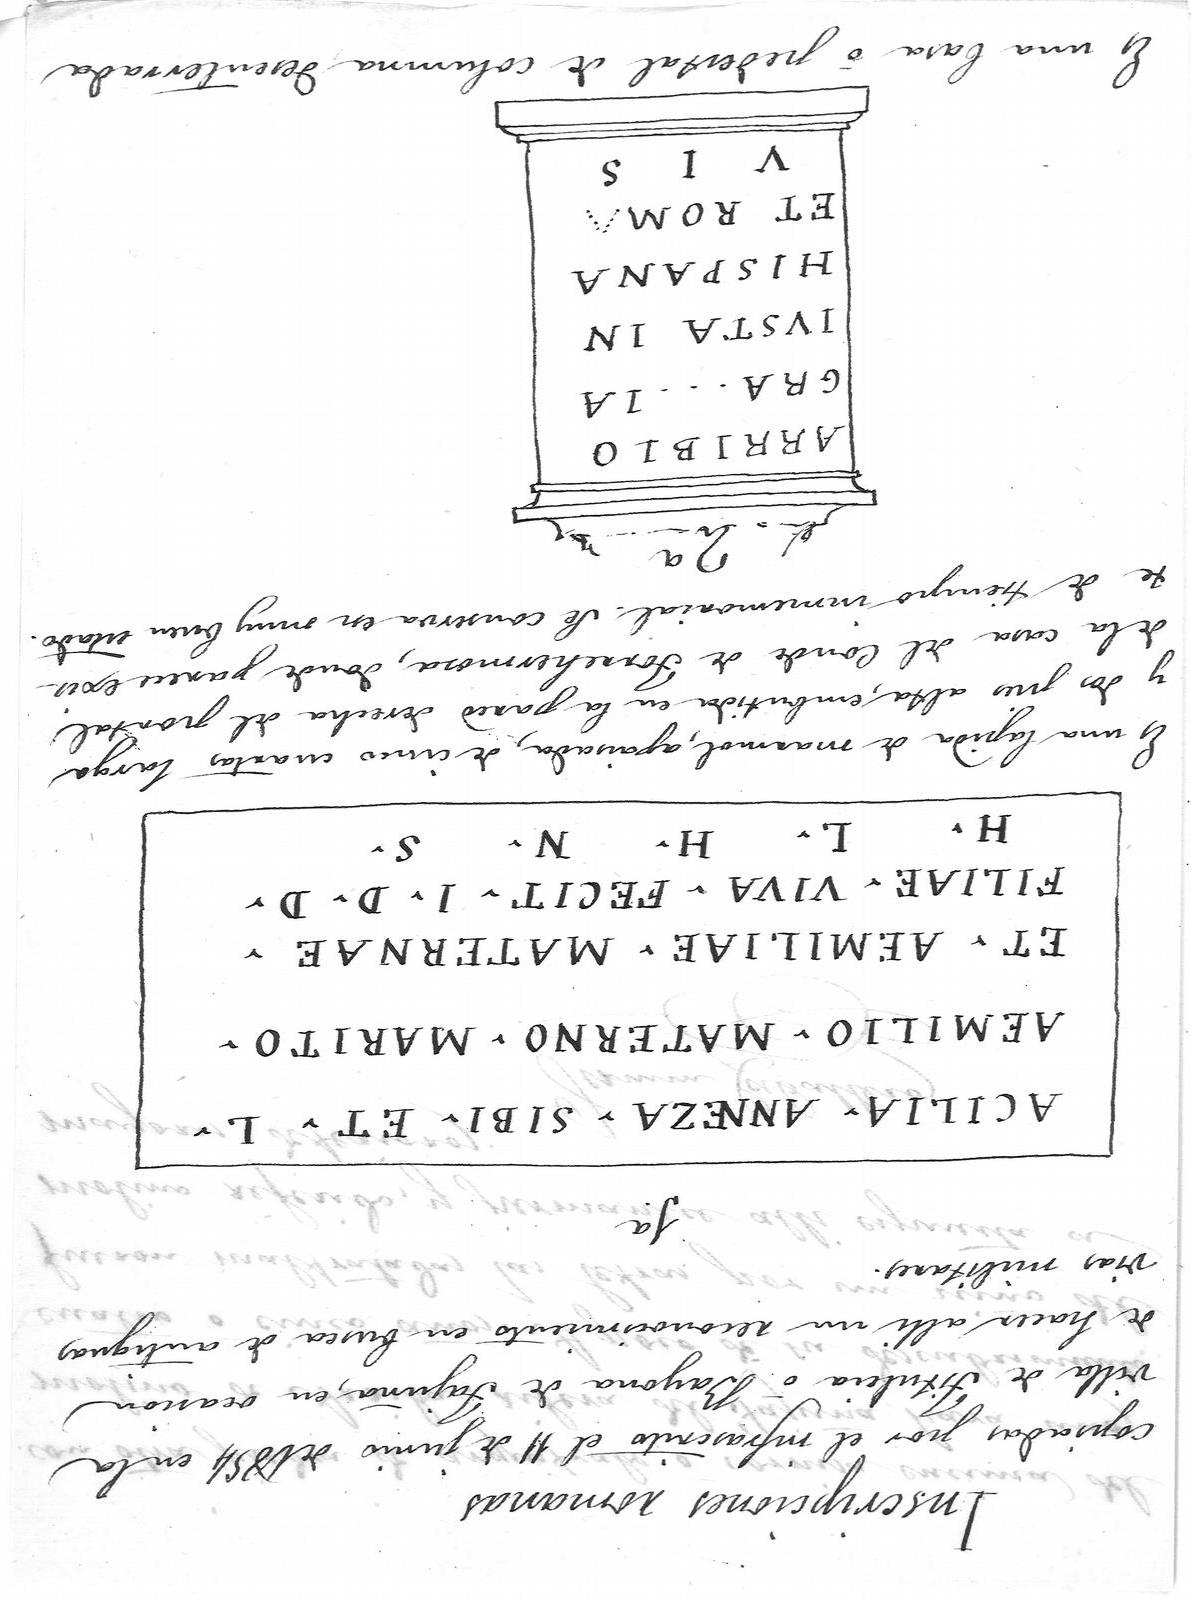 Inscripciones romanas
copiadas por el infrascrito el 11 de junio de 1854 en la
villa de Titulcia ó Bayona de Tajuña, en ocasion
de hacer alli un reconocimiento en busca de antiguas
vias militares.
1a
ACILIA. ANNEZA. SIBI. ET. L.
AEMILIO. MATERNO. MARITO.
ET. AEMILIAE. MATERNAE.
FILIAE. VIVA. FECIT. I. D. D.
H. L. H. N. S.
Es una lapida de marmol, apaisada, de cinco cuartas larga
y dos pies alta, embutida en la pared derecha del portal
de la casa del Conde de Torrehermosa, donde parece exis-
te de tiempo inmemorial. Se conserva en muy buen estado.
2a
ARRIBIO
GRA....IA
IVSTA IN
HISPANA
ET ROMA
V I S
Es una basa ó pedestal de columna, desenterrada